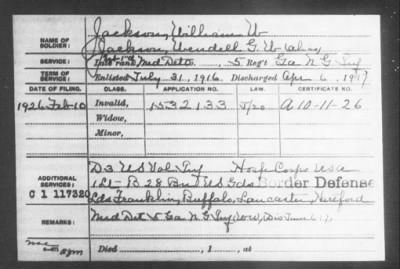 Jackson, William W
NAME OF SOLDIER: Jackson, Wendell G. W (alias)
SERVICE: Med Det 5 Reg't Ga N G Inf
TERM OF SERVICE: Enlisted July 31, 1916 Discharged Apr 6, 1917
DATE OF FILING. CLASS. APPLICATION NO. LAW. CERTIFICATE NO.
1926 Feb-10 Invalid, 1532133 A 10-11-26
Widow,
Minor,
ADDITIONAL SERVICES: D3 US Vol Inf Hosp Corps USA
C 1 117320 1 Lt B 28 Bn US Gds Border Defense
Franklin, Buffalo, Lancaster, Hereford
REMARKS: Med Det 5 Ga N G Inf
Died , 1 , at